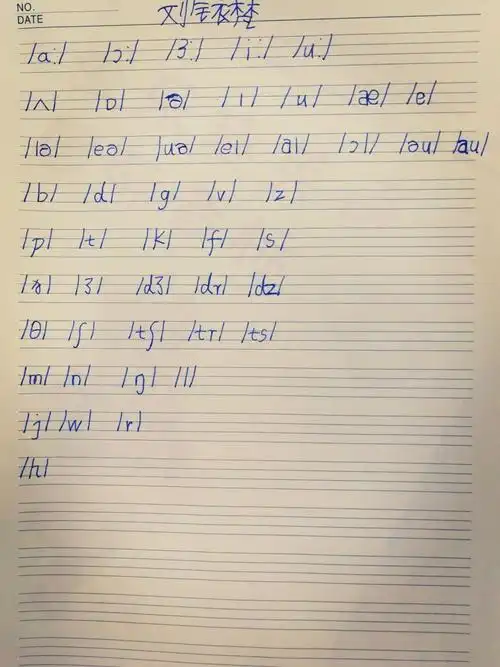 NO.
DATE
/ɑː/ /ɔː/ /ɜː/ /iː/ /uː/
/ʌ/ /ɒ/ /ə/ /ɪ/ /u/ /æ/ /e/
/ɪə/ /eə/ /uə/ /eɪ/ /aɪ/ /ɔɪ/ /əu/ /au/
/b/ /d/ /g/ /v/ /z/
/p/ /t/ /k/ /f/ /s/
/ð/ /ʒ/ /dʒ/ /dr/ /dz/
/θ/ /ʃ/ /tʃ/ /tr/ /ts/
/m/ /n/ /ŋ/ /l/
/j/ /w/ /r/
/h/